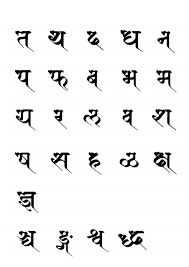 त थ द ध न
प फ ब भ म
य र ल व श
ष स ह ळ क्ष
ज्ञ
ङ्ग श्व